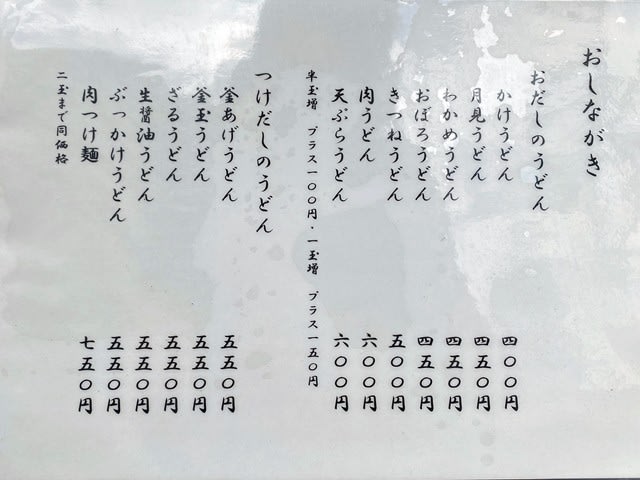 おしながき
おだしのうどん
かけうどん 四〇〇円
月見うどん 四五〇円
わかめうどん 四五〇円
おぼろうどん 四五〇円
きつねうどん 五〇〇円
肉うどん 六〇〇円
天ぷらうどん 六〇〇円
半玉増 プラス一〇〇円・一玉増 プラス一五〇円
つけだしのうどん
釜あげうどん 五五〇円
釜玉うどん 五五〇円
ざるうどん 五五〇円
生醤油うどん 五五〇円
ぶっかけうどん 五五〇円
肉つけ麺 七五〇円
二玉まで同価格